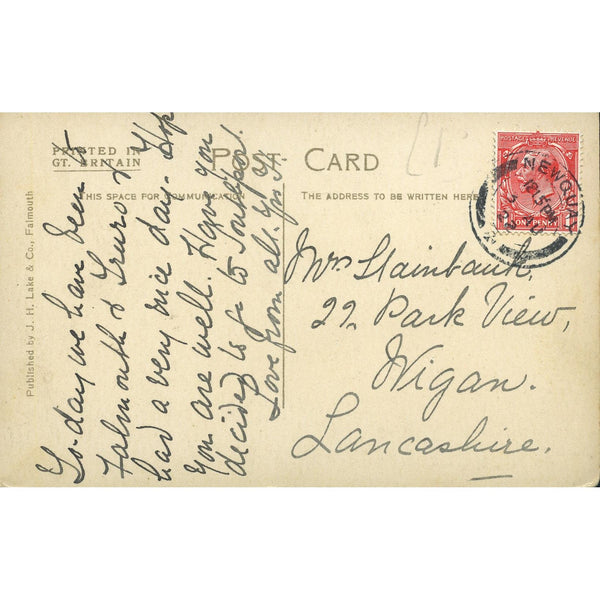 PRINTED IN
GT. BRITAIN
POST CARD
THIS SPACE FOR COMMUNICATION
THE ADDRESS TO BE WRITTEN HERE
Published by J. H. Lake & Co., Falmouth
To-day we have been to
Falmouth & Truro &
had a very nice day. Hope
you are well. Have you
decided to go to Southport.
Love from all.
Mrs Stainbank,
22 Park View,
Wigan.
Lancashire.
POSTAGE REVENUE
ONE PENNY
NEWQUAY